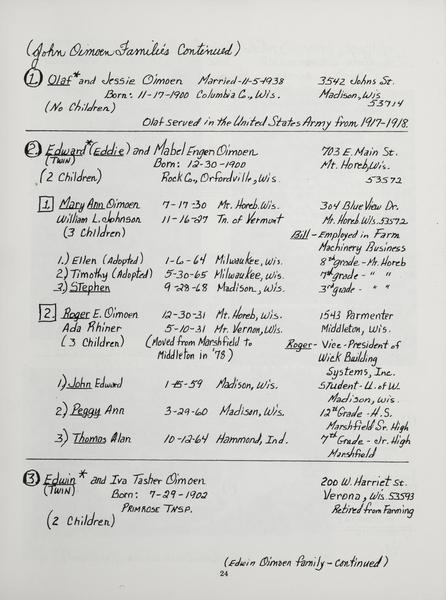 (John Oimoen Families Continued)
1. Olaf* and Jessie Oimoen Married-11-5-1938 3542 Johns St.
Born: 11-17-1900 Columbia Co., Wis. Madison, Wis
(No Children) 53714
Olaf served in the United States Army from 1917-1918.
2. Edward* (Eddie) and Mabel Engen Oimoen 703 E. Main St.
(TWIN) Born: 12-30-1900 Mt. Horeb, Wis.
(2 Children) Rock Co., Orfordville, Wis. 53572
1. Mary Ann Oimoen 7-17-30 Mt. Horeb, Wis. 304 Blue View Dr.
William L. Johnson 11-16-27 Tn. of Vermont Mt. Horeb Wis. 53572
(3 Children) Bill - Employed in Farm
Machinery Business
1.) Ellen (Adopted) 1-6-64 Milwaukee, Wis. 8th grade - Mt. Horeb
2.) Timothy (Adopted) 5-30-65 Milwaukee, Wis. 7th grade - " "
3.) Stephen 9-28-68 Madison, Wis. 3rd grade - " "
2. Roger E. Oimoen 12-30-31 Mt. Horeb, Wis. 1543 Parmenter
Ada Rhiner 5-10-31 Mt. Vernon, Wis. Middleton, Wis.
(3 Children) (Moved from Marshfield to Roger - Vice-President of
Middleton in '78) Wick Building
Systems, Inc.
1) John Edward Madison, Wis. Student - U. of W.
Madison, Wis.
2) Peggy Ann 3-29-60 Madison, Wis. 12th Grade - H.S.
Marshfield Sr. High
3) Thomas Alan 10-12-64 Hammond, Ind. 7th Grade - Jr. High
Marshfield
3. Edwin* and Iva Tasher Oimoen 200 W. Harriet St.
(TWIN) Born: 7-29-1902 Verona, Wis. 53593
PRIMROSE TNSP. Retired from Farming
(2 Children)
(Edwin Oimoen family - continued)
24